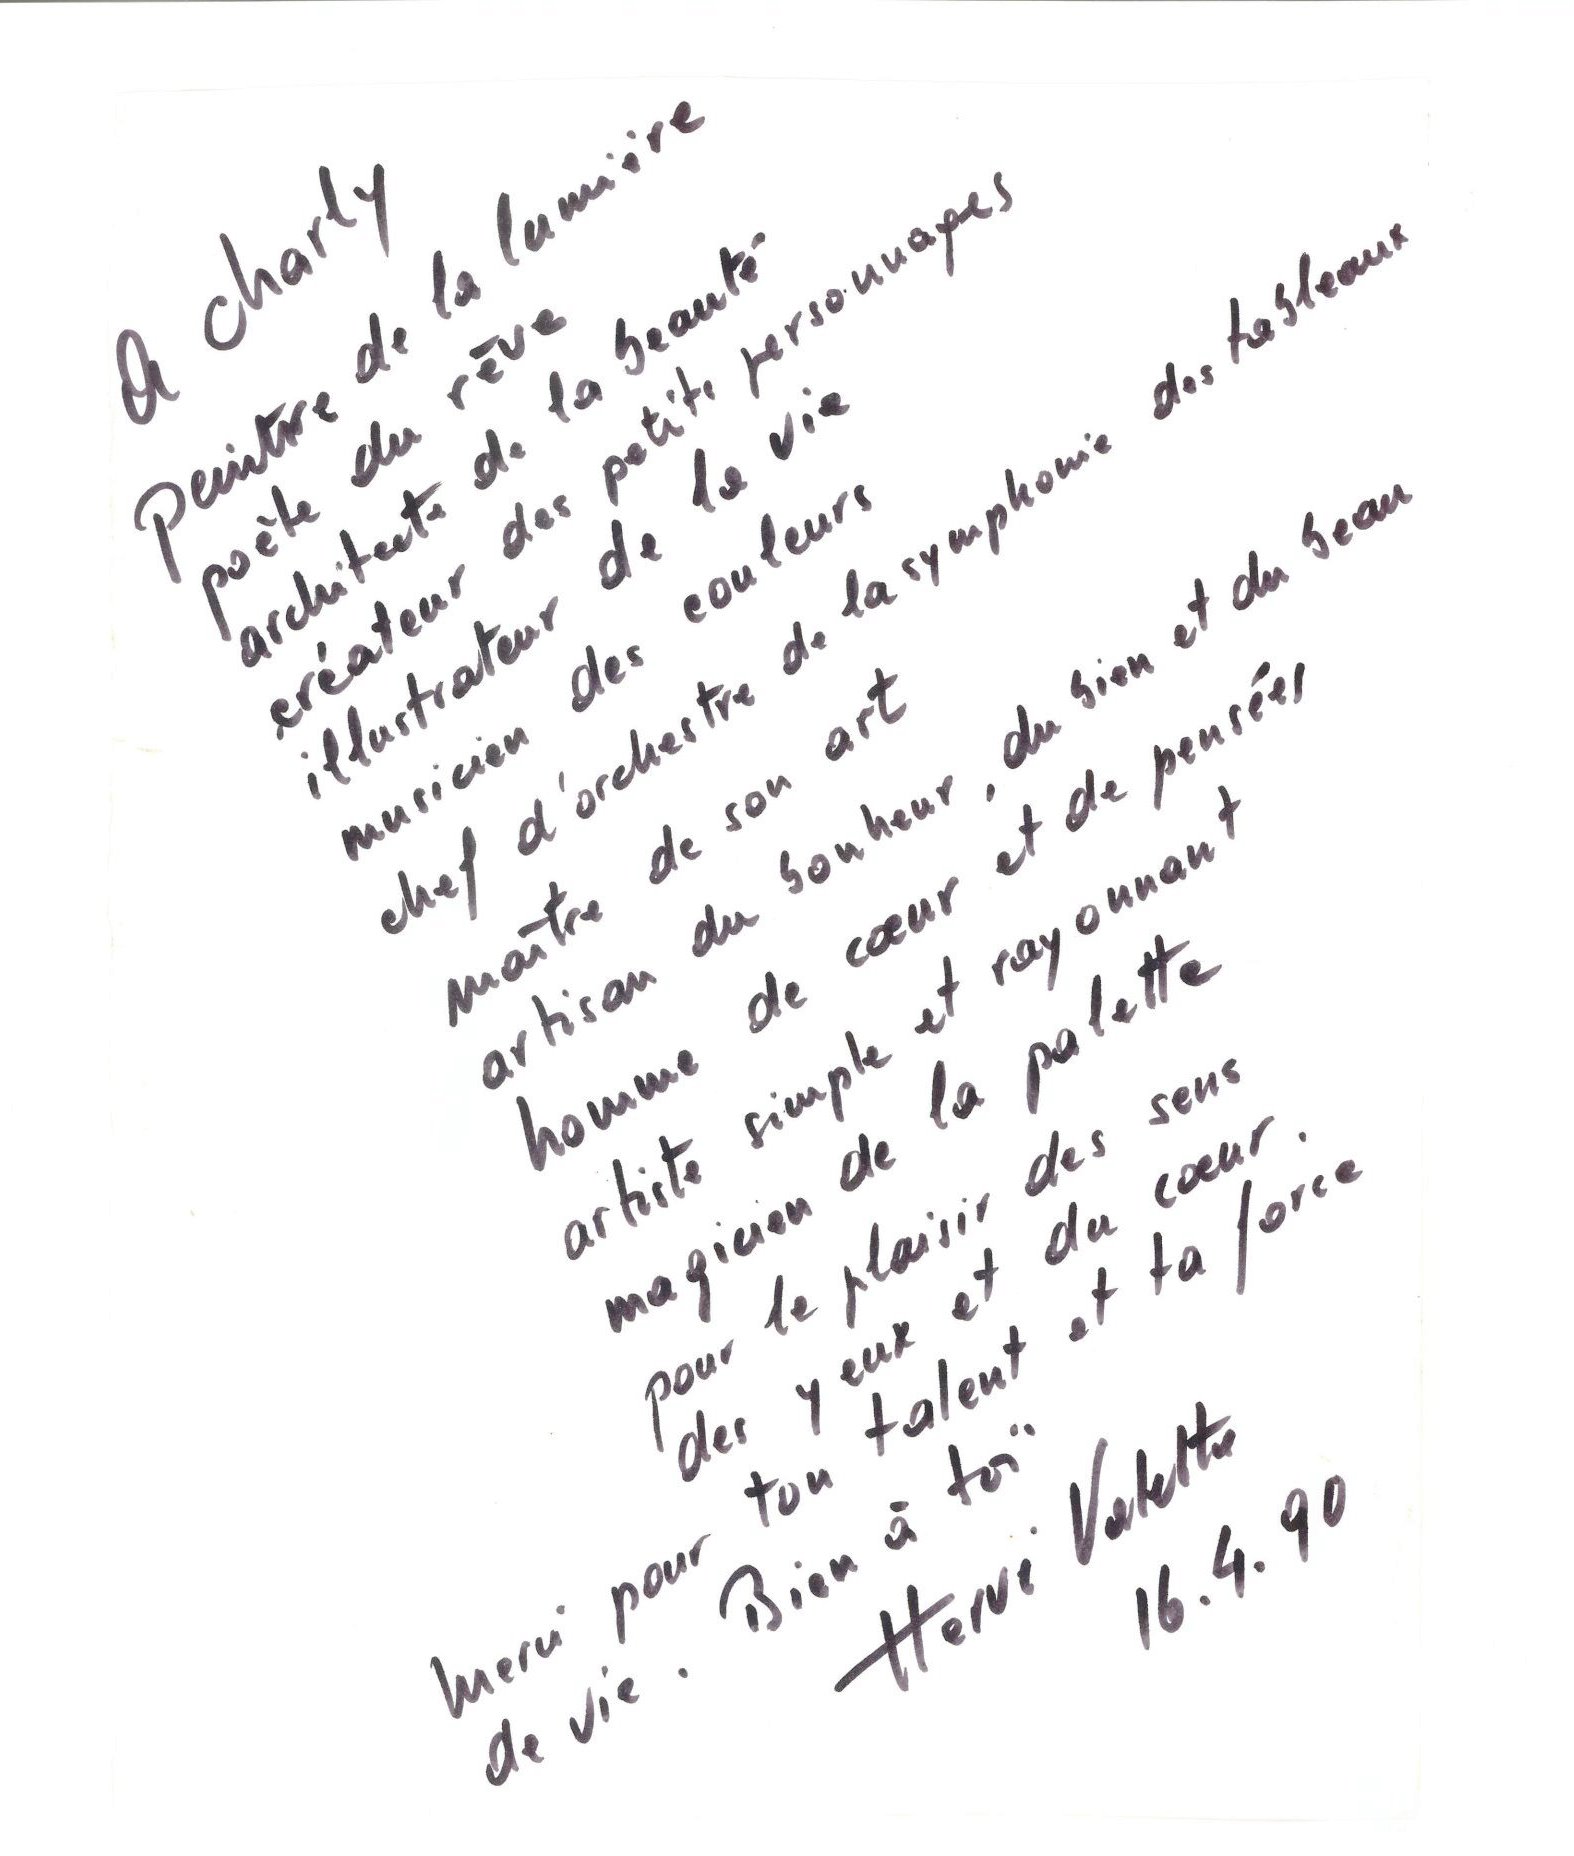 A Charly
Peintre de la lumière
poète du rêve
architecte de la beauté
créateur des petits personnages
illustrateur de la vie
musicien des couleurs
chef d'orchestre de la symphonie des tableaux
maître de son art
artisan du bonheur, du bien et du beau
homme de cœur et de pensées
artiste simple et rayonnant
magicien de la palette
pour le plaisir des sens
des yeux et du cœur.
Merci pour ton talent et ta force
de vie. Bien à toi
Hervé Valette
16.4.90